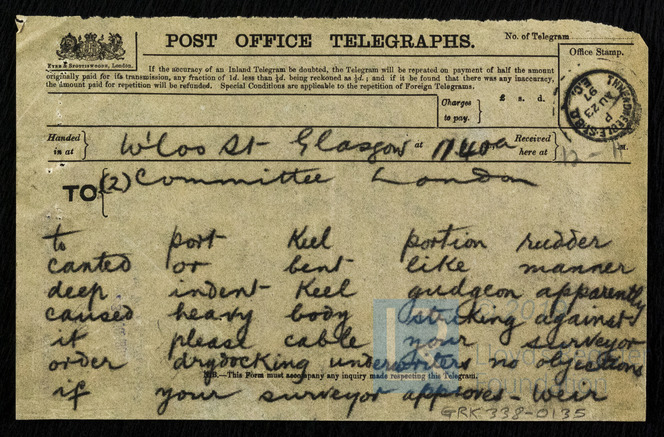 POST OFFICE TELEGRAPHS.
No. of Telegram
EYRE & SPOTTISWOODE, London.
If the accuracy of an Inland Telegram be doubted, the Telegram will be repeated on payment of half the amount
originally paid for its transmission, any fraction of 1d. less than ½d. being reckoned as ½d.; and if it be found that there was any inaccuracy,
the amount paid for repetition will be refunded. Special Conditions are applicable to the repetition of Foreign Telegrams.
Office Stamp.
Charges to pay. } £ s. d.
AU 23
97
Handed in at } W'loo St Glasgow at 11.40a Received here at }
TO { (2) Committee London
to port keel portion rudder
canted or bent like manner
deep indent keel gudgeon apparently
caused heavy body striking against
it please cable your surveyor
order drydocking underwriters no objections
N.B.—This Form must accompany any inquiry made respecting this Telegram.
if your surveyor approves - Weir
GRK 338-0135